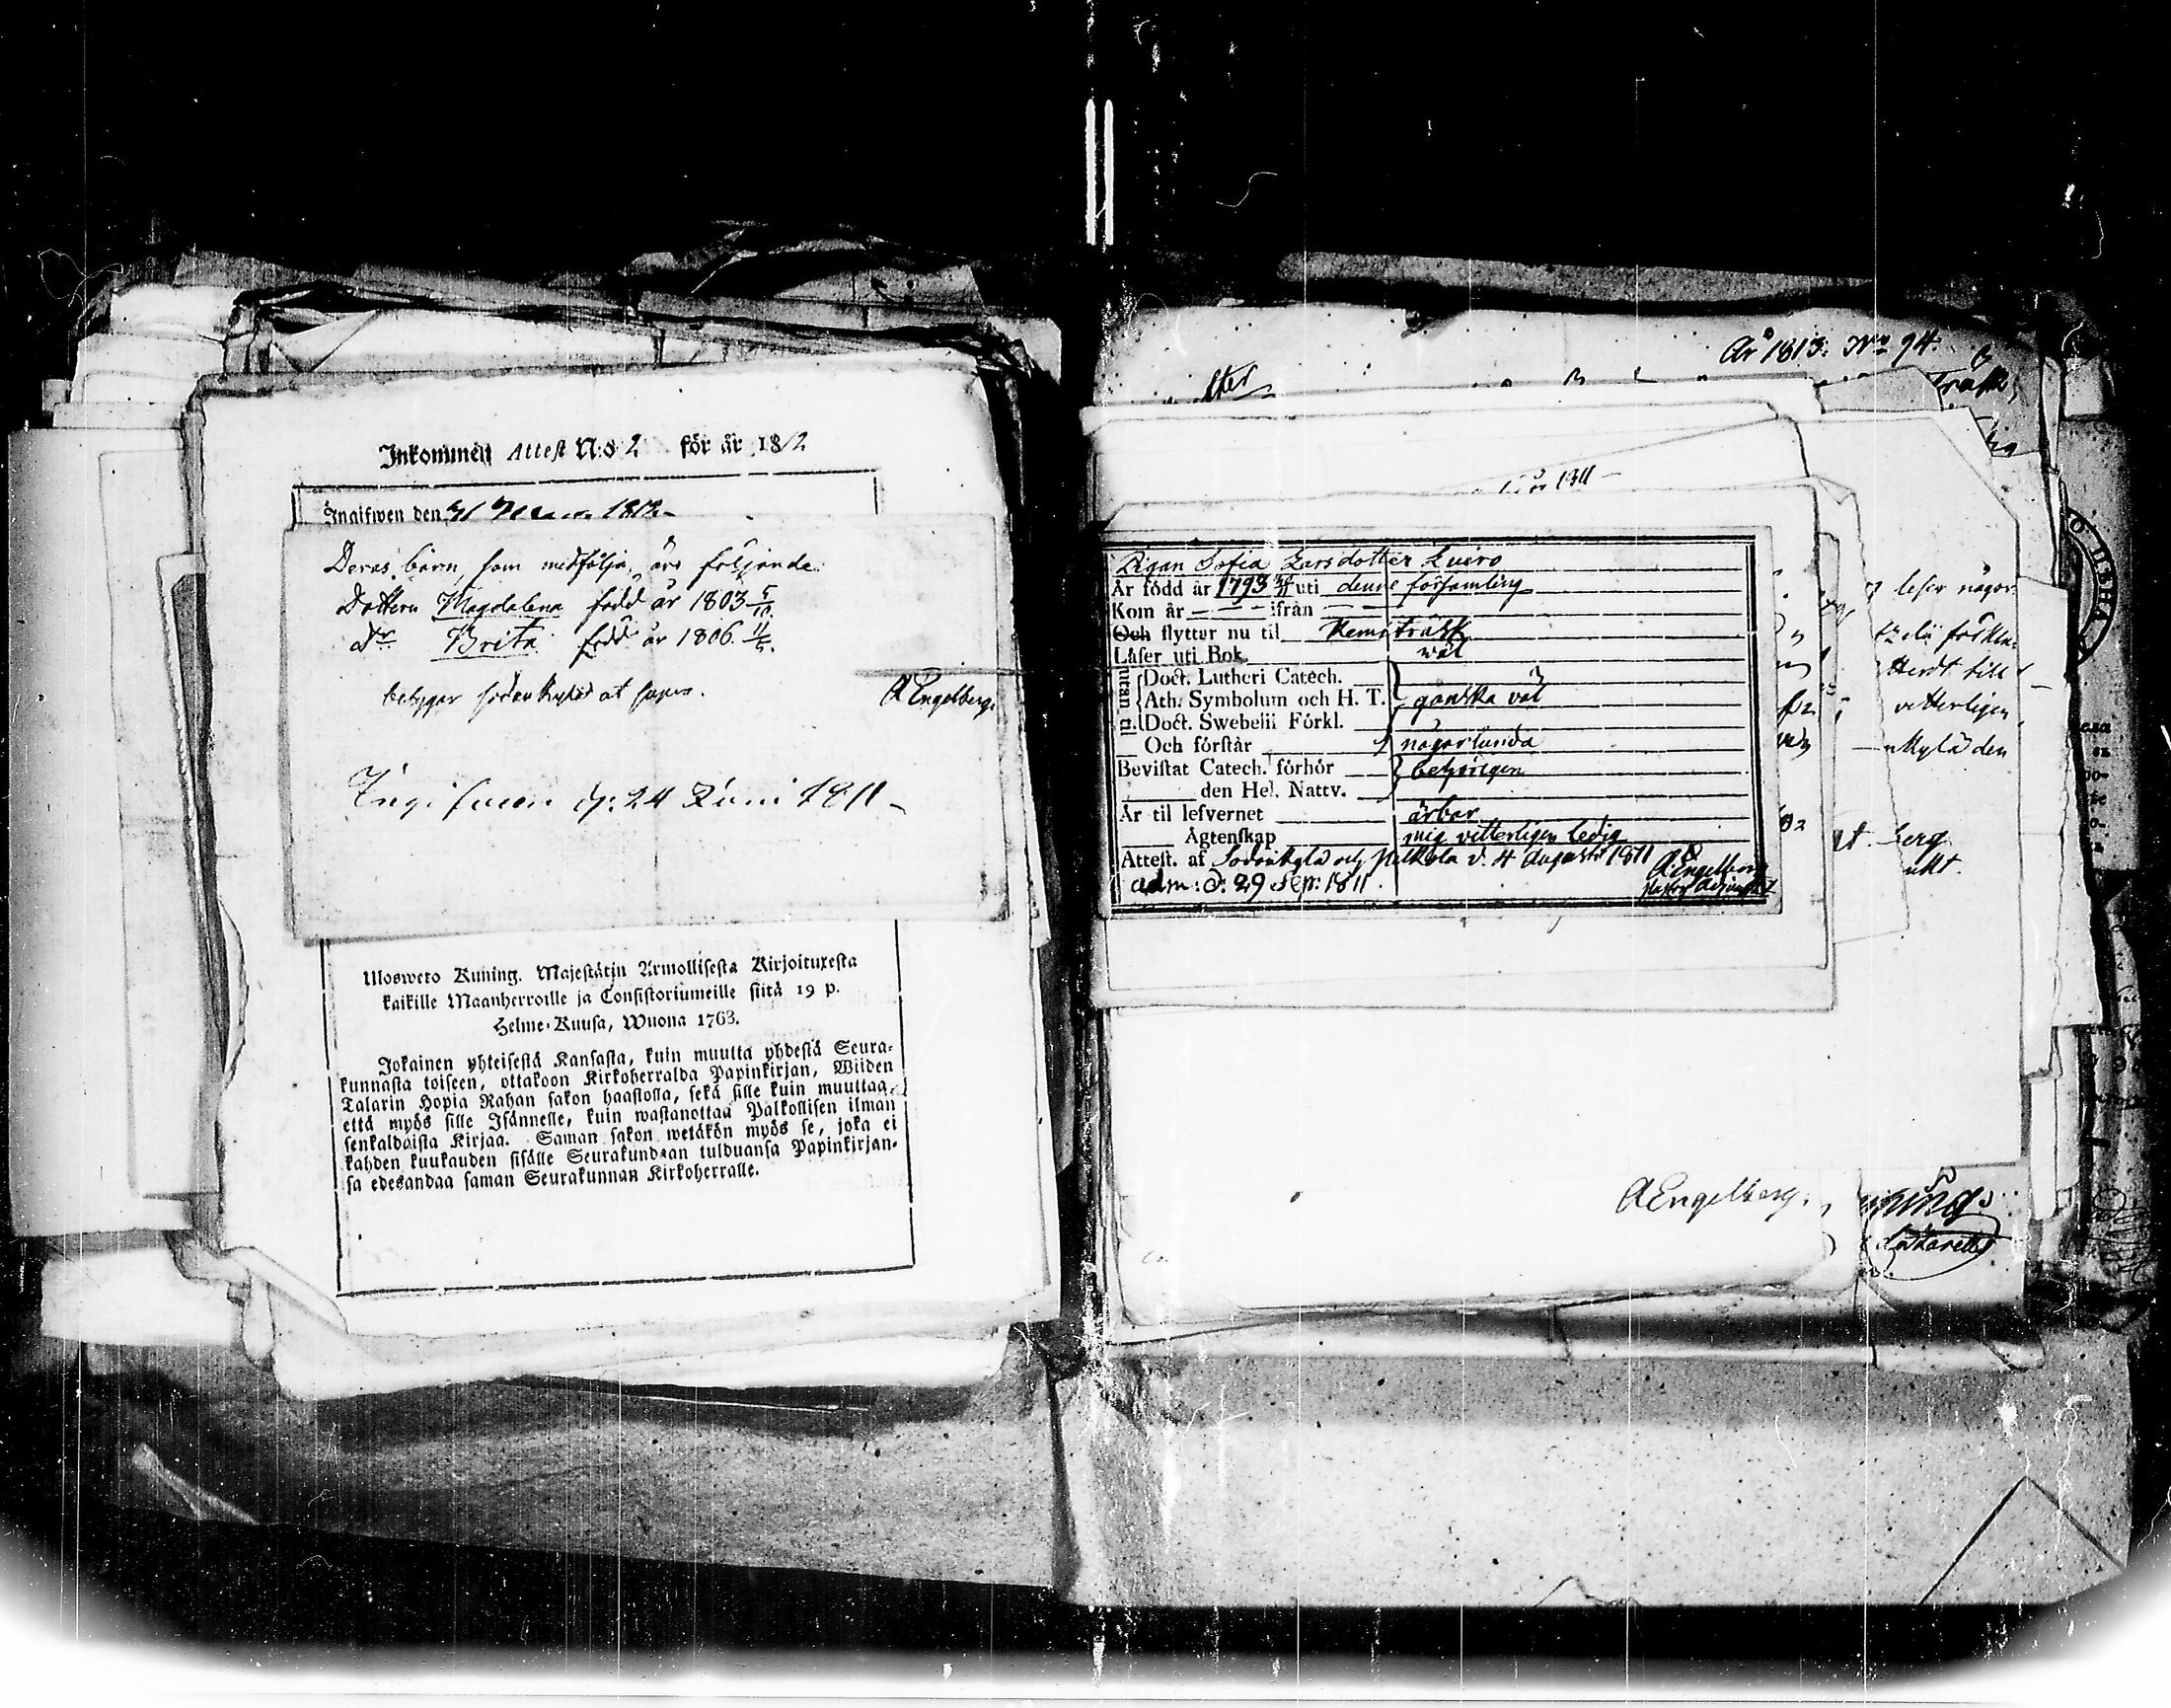 Inkommen Attest N:o 2 för år 1812
Ingifwen den 31 1812.
Deras barn, som medfölja, äro följande.
Dottern Magdalena född år 1803 5/10.
Dr Brita född år 1806.
betygar
AEngelberg.
Ingifwen d: 24 Juni 1811
Ulosweto Kuning. Majestätin Armollisesta Kirjoituxesta
kaikille Maanherroille ja Consistoriumeille siitä 19 p.
Helme-Kuusa, Wuona 1763.
Jokainen yhteisestä Kansasta, kuin muutta yhdestä Seura-
kunnasta toiseen, ottakoon Kirkoherralda Papinkirjan, Wiiden
Talarin Hopia Rahan sakon haastolla, sekä sille kuin muuttaa,
että myös sille Isännelle, kuin wastanottaa Palkollisen ilman
senkaldaista Kirjaa. Saman sakon wetäkön myös se, joka ei
kahden kuukauden sisälle Seurakundaan tulduansa Papinkirjan-
sa edesandaa saman Seurakunnan Kirkoherralle.
År 1813: No 94.
Träsk,
1811
Pigan Sofia Larsdotter Kuiro
År född år 1793 uti denne församling
Kom år — ifrån —
Och flyttar nu til Kemiträsk
Läser uti Bok wäl
utan til
Doct. Lutheri Catech.
Ath. Symbolum och H. T. ganska väl
Doct. Swebelii Förkl.
Och förstår någorlunda
Bevistat Catech. förhör behörigen
den Hel. Nattv.
Är til lefvernet ärbar
Ägtenskap mig vitterligen ledig
Attest. af Sodankylä och d. 4 Augusti 1811
AEngelberg
Pastors Adjunct
adm: d: 29 Sep: 1811.
läser någor
vitterligen
nkylä den
berg
AEngelberg.